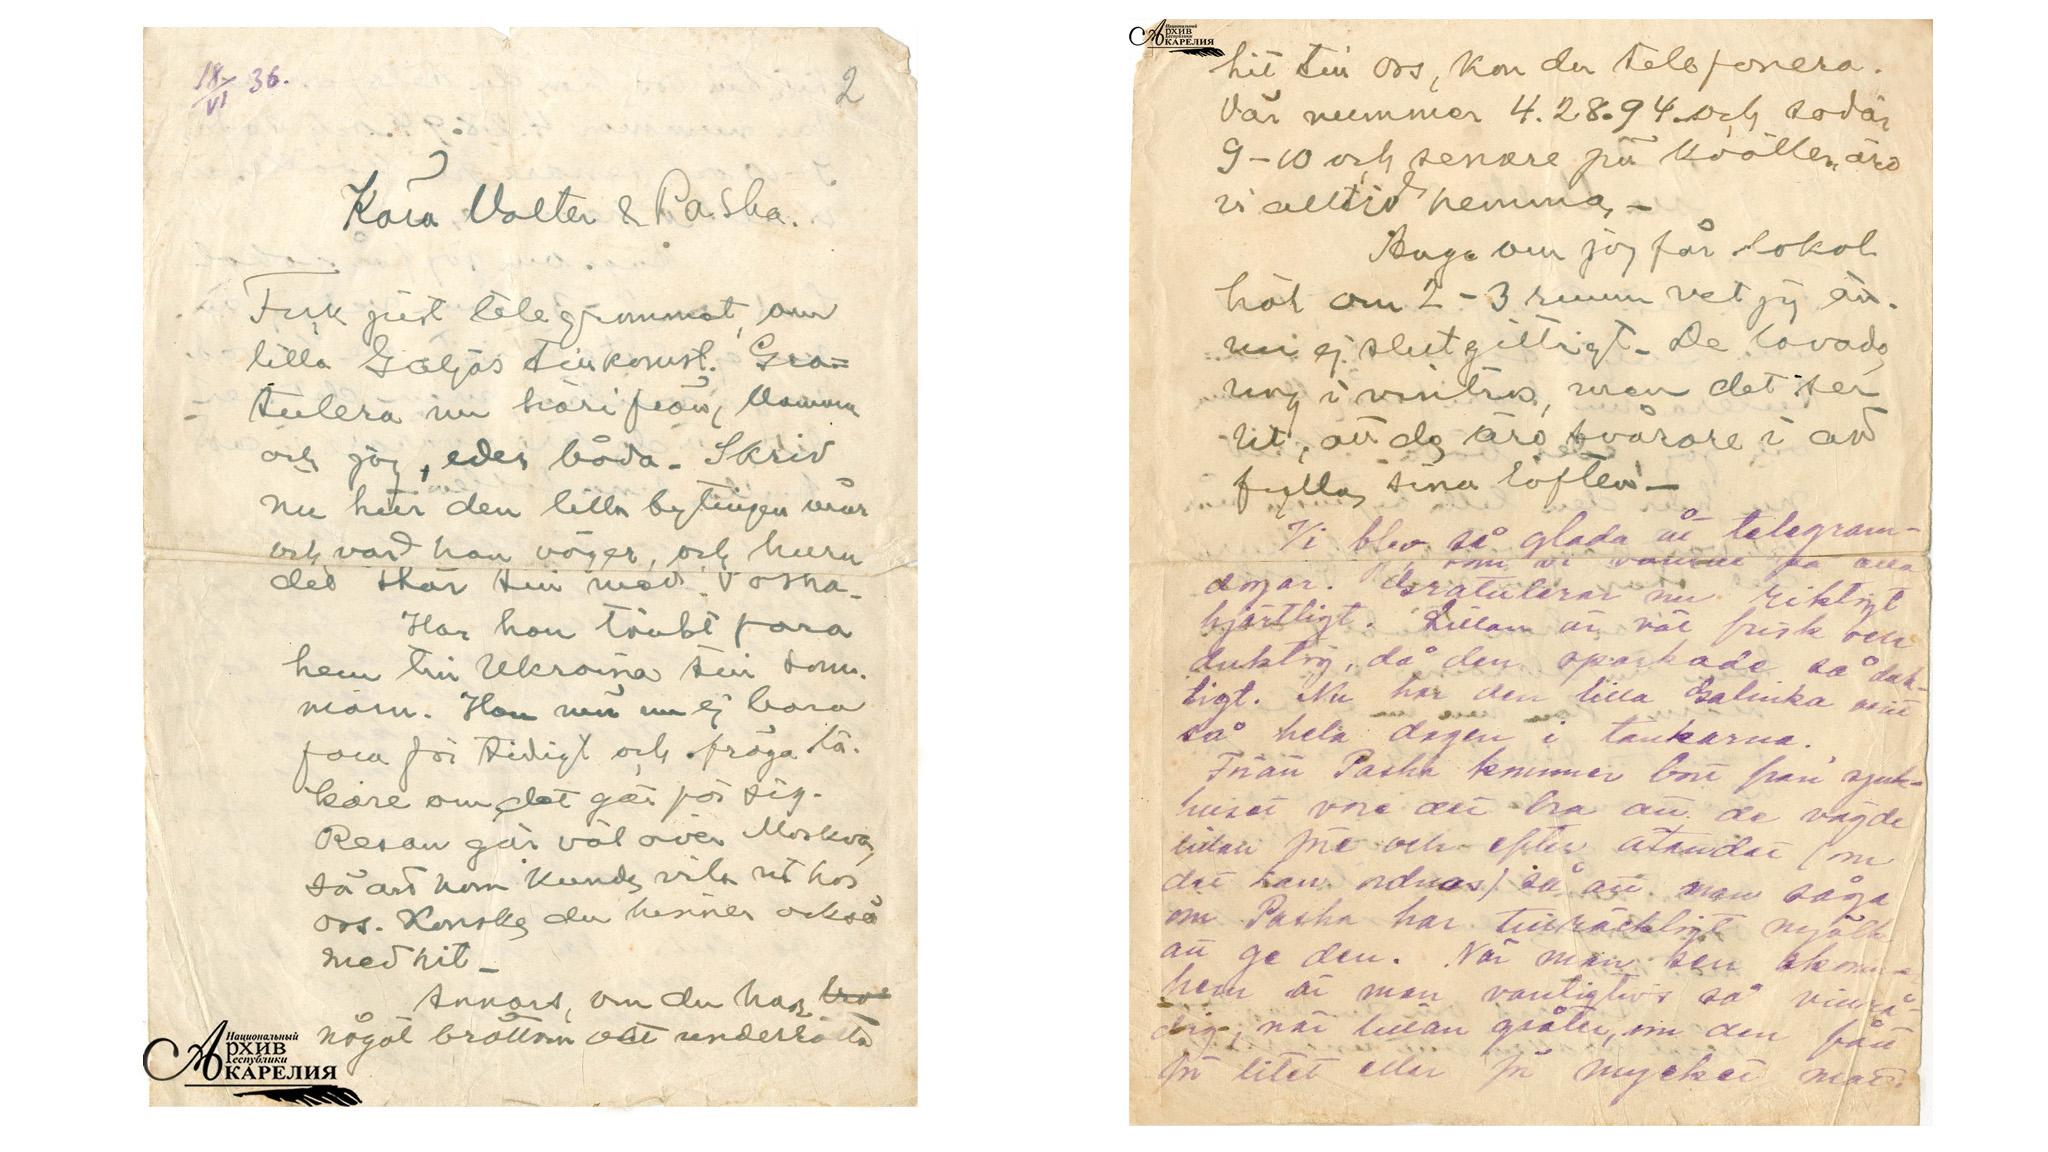 18/VI 36.
2
Kära Valter & Pasha.
Fick just telegrammet, om
lilla Galjas tillkomst. Gra=
tulera nu härifrån, Mamma
och jag, eder båda. Skriv
nu hur den lilla bytingen mår
och vad han väger, och huru
det står till med Pasha.
Har hon tänkt fara
hem till Ukraina till som.
marn. Hon må nu ej bara
fara för tidigt och fråga lä.
kare om det går för sig.
Resan går väl över Moskva,
så att hon kunde vila ut hos
oss. Kanske du hinner också
med hit _
Annars, om du har
något bråttom att underrätta
Национальный
Архив
Республики
Карелия
Национальный
Архив
Республики
Карелия
hit till oss, kan du telefonera.
Vår nummer 4.28.94. och sådär
9-10 och senare på kvällen äro
vi alltid hemma, _
Ang. om jag får lokal
här om 2-3 rum vet jag än.
nu ej slutgiltigt. De lovade
mig i vintras, men det ser
ut, att de äro svårare i att
fylla sina löften _
Vi blev så glada åt telegram-
som vi på alla
dagar. Gratulerar nu riktigt
hjärtligt. Lillan är väl frisk och
duktig, då den sparkade så duk-
tigt. Nu har den lilla Galinka varit
så hela dagen i tankarna.
Innan Pasha kommer bort från sjuk-
huset vore det bra att de vägde
lillan före och efter ätandet (om
det kan ordnas) så att man såge
om Pasha har tillräckligt mjölk
att ge den. När man sen
hem är man vanligtvis så villrå-
dig, när lillan gråter, om den fått
för litet eller för mycket mat.